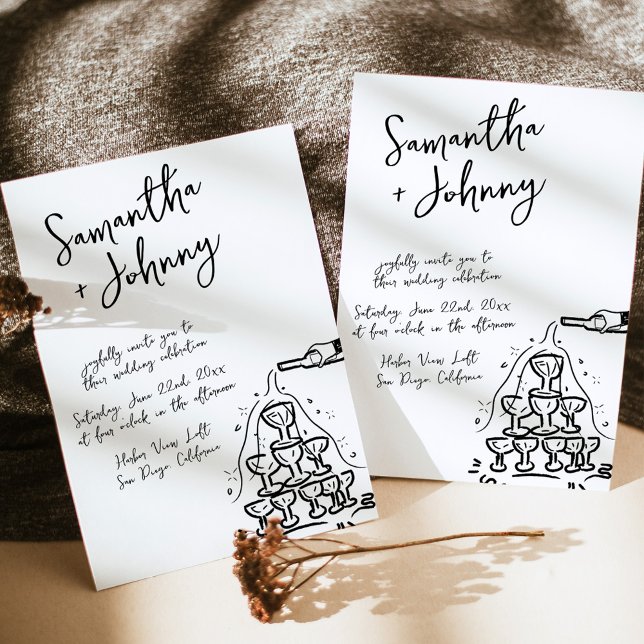 Samantha
+ Johnny
joyfully invite you to
their wedding celebration
Saturday, June 22nd, 20xx
at four o'clock in the afternoon
Harbor View Loft
San Diego, California
Samantha
+ Johnny
joyfully invite you to
their wedding celebration
Saturday, June 22nd, 20xx
at four o'clock in the afternoon
Harbor View Loft
San Diego, California